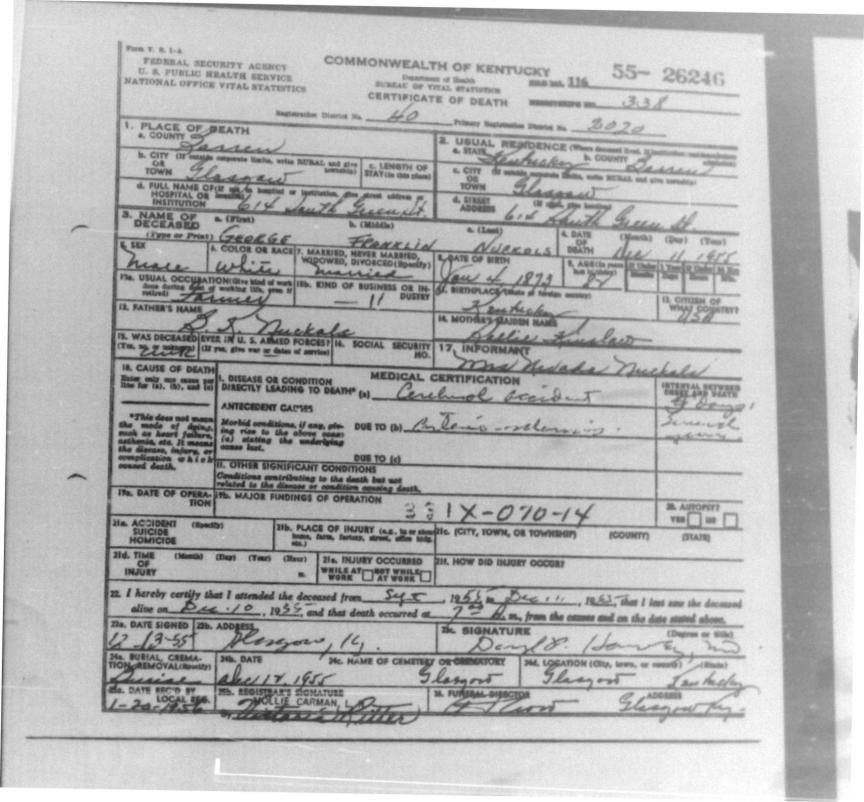 Form V. S. 1-A
FEDERAL SECURITY AGENCY
U. S. PUBLIC HEALTH SERVICE
NATIONAL OFFICE VITAL STATISTICS
COMMONWEALTH OF KENTUCKY
Department of Health
BUREAU OF VITAL STATISTICS
CERTIFICATE OF DEATH
FILE NO. 116 55- 26246
REGISTRAR'S NO. 338
Registration District No. 40 Primary Registration District No. 3020
1. PLACE OF DEATH
a. COUNTY Barren
b. CITY (If outside corporate limits, write RURAL and give township) OR TOWN Glasgow
c. LENGTH OF STAY (in this place)
d. FULL NAME OF (If not in hospital or institution, give street address or location) HOSPITAL OR INSTITUTION 614 South Green St.
2. USUAL RESIDENCE (Where deceased lived. If institution: residence before admission)
a. STATE Kentucky b. COUNTY Barren
c. CITY (If outside corporate limits, write RURAL and give township) OR TOWN Glasgow
d. STREET ADDRESS 614 South Green St.
3. NAME OF DECEASED (Type or Print)
a. (First) GEORGE b. (Middle) FRANKLIN c. (Last) NUCKOLS
4. DATE OF DEATH (Month) (Day) (Year) Dec 11 1955
5. SEX Male
6. COLOR OR RACE White
7. MARRIED, NEVER MARRIED, WIDOWED, DIVORCED (Specify) Married
8. DATE OF BIRTH Jan 4 1873
9. AGE (In years last birthday)
10a. USUAL OCCUPATION (Give kind of work done during most of working life, even if retired) Farmer
10b. KIND OF BUSINESS OR INDUSTRY — 11
11. BIRTHPLACE (State or foreign country) Kentucky
12. CITIZEN OF WHAT COUNTRY? USA
13. FATHER'S NAME Nuckols
14. MOTHER'S MAIDEN NAME Kinslow
15. WAS DECEASED EVER IN U. S. ARMED FORCES? (Yes, no, or unknown) (If yes, give war or dates of service)
16. SOCIAL SECURITY NO.
17. INFORMANT Mrs Nevada Nuckols
18. CAUSE OF DEATH
Enter only one cause per line for (a), (b), and (c)
*This does not mean the mode of dying, such as heart failure, asthenia, etc. It means the disease, injury, or complication which caused death.
MEDICAL CERTIFICATION
I. DISEASE OR CONDITION DIRECTLY LEADING TO DEATH* (a) Cerebral accident
ANTECEDENT CAUSES
Morbid conditions, if any, giving rise to the above cause (a) stating the underlying cause last.
DUE TO (b)
DUE TO (c)
INTERVAL BETWEEN ONSET AND DEATH
Days
Several years
II. OTHER SIGNIFICANT CONDITIONS
Conditions contributing to the death but not related to the disease or condition causing death.
19a. DATE OF OPERATION
19b. MAJOR FINDINGS OF OPERATION
331X-070-14
20. AUTOPSY? YES NO
21a. ACCIDENT SUICIDE HOMICIDE (Specify)
21b. PLACE OF INJURY (e.g., in or about home, farm, factory, street, office bldg., etc.)
21c. (CITY, TOWN, OR TOWNSHIP) (COUNTY) (STATE)
21d. TIME OF INJURY (Month) (Day) (Year) (Hour) m.
21e. INJURY OCCURRED WHILE AT WORK NOT WHILE AT WORK
21f. HOW DID INJURY OCCUR?
22. I hereby certify that I attended the deceased from Sept, 1955 to Dec. 11, 1955, that I last saw the deceased
alive on Dec. 10, 1955, and that death occurred at 7 A m., from the causes and on the date stated above.
22a. DATE SIGNED 12-13-55
22b. ADDRESS Glasgow, Ky.
22c. SIGNATURE (Degree or title) Daryl P. Harvey, MD
24a. BURIAL, CREMATION, REMOVAL (Specify) Burial
24b. DATE Dec 12, 1955
24c. NAME OF CEMETERY OR CREMATORY Glasgow
24d. LOCATION (City, town, or county) (State) Glasgow Kentucky
25a. DATE REC'D BY LOCAL REG. 1-20-1956
25b. REGISTRAR'S SIGNATURE MOLLIE CARMAN, L.R.
by Victoria Ritter
26. FUNERAL DIRECTOR
ADDRESS Glasgow Ky.